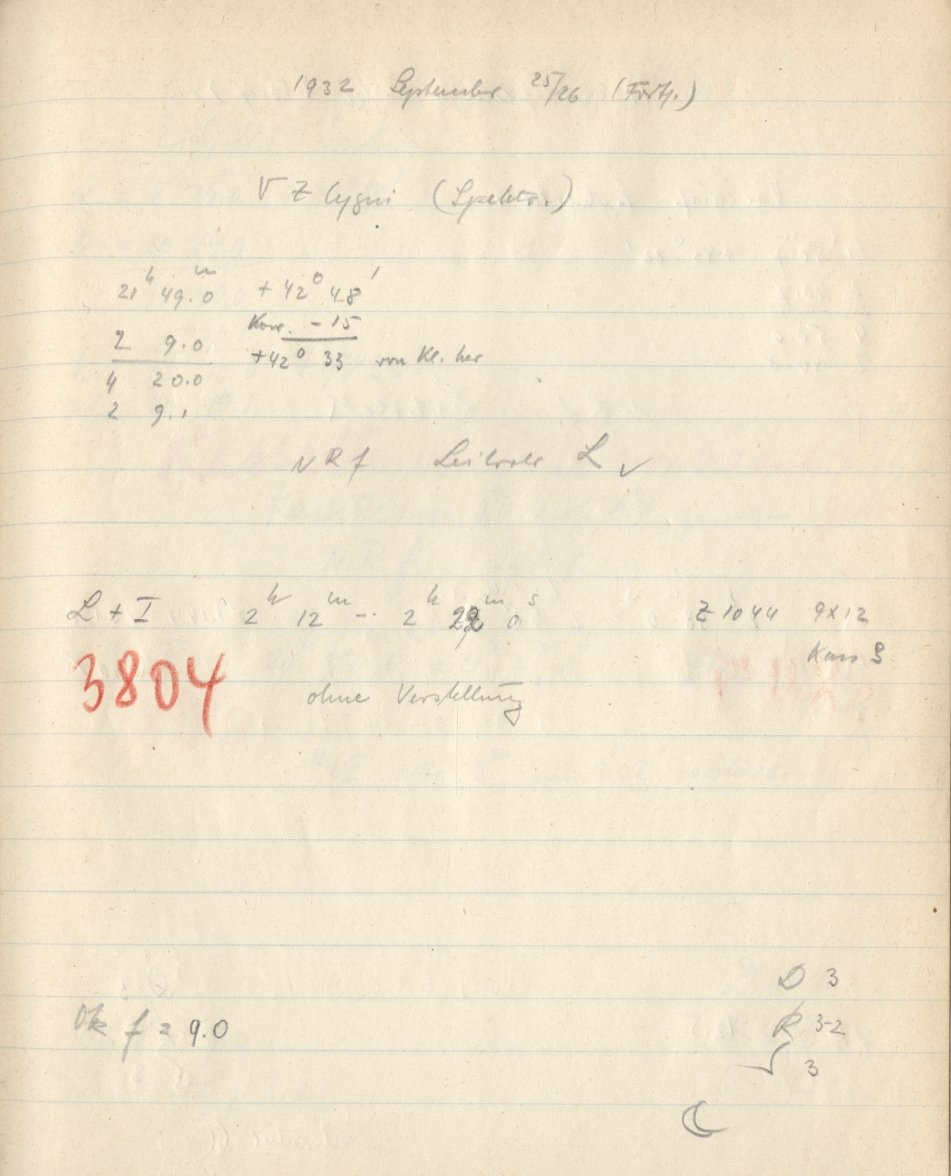 1932 September 25/26 (Forts.)
VZ Cygni (Spektr.)
21h 49.m0 +42° 48'
Korr. -15
2 9.0
+42° 33 von Kl. her
4 20.0
2 9.1
NRf Leitrohr L ✓
L + I 2h 12m - 2h 22m 0s Z 1044 9x12
3804 ohne Verstellung
D 3
Ok f = 9.0
R 3-2
3